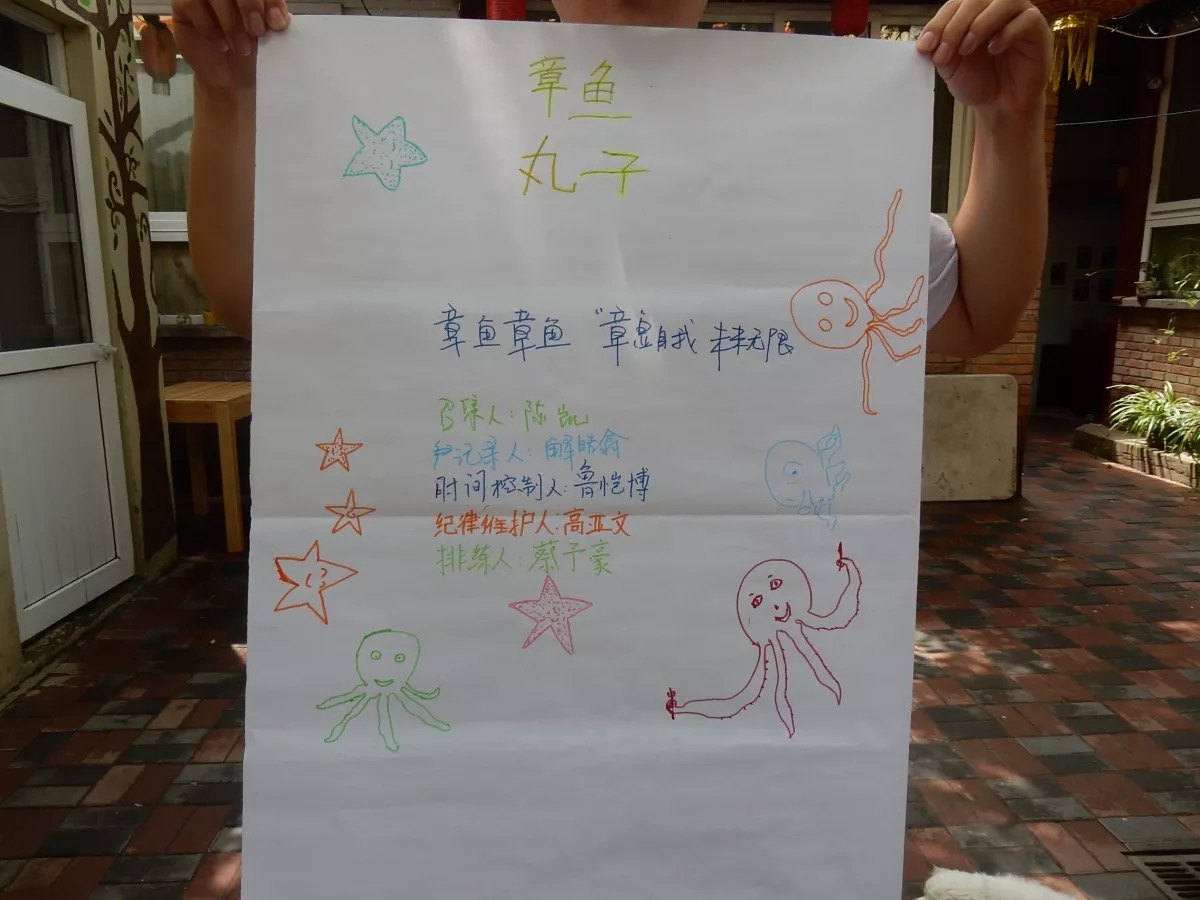 章鱼
丸子
章鱼章鱼 "章显自我 未来无限
纪录人:陈凯
记录人:解皓翕
时间控制人:鲁恺博
纪律维护人:高亚文
排练人:蔡予豪